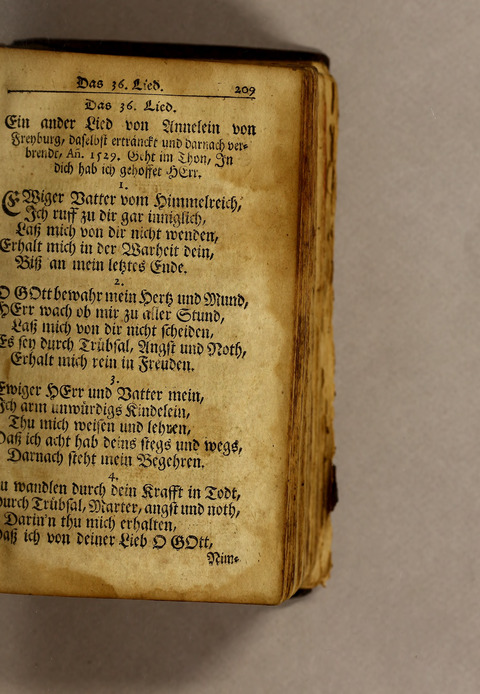 Das 36. Lied. 209
Das 36. Lied.
Ein ander Lied von Annelein von
Freyburg, daselbst ertränckt und darnach ver-
brendt, An̄. 1529. Geht im Thon, In
dich hab ich gehoffet HErr.
1.
EWiger Vatter vom Himmelreich,
Ich ruff zu dir gar inniglich,
Laß mich von dir nicht wenden,
Erhalt mich in der Warheit dein,
Biß an mein letztes Ende.
2.
O GOtt bewahr mein Hertz und Mund,
HErr wach ob mir zu aller Stund,
Laß mich von dir nicht scheiden,
Es sey durch Trübsal, Angst und Noth,
Erhalt mich rein in Freuden.
3.
Ewiger HErr und Vatter mein,
Ich arm unwürdigs Kindelein,
Thu mich weisen und lehren,
Daß ich acht hab deins stegs und wegs,
Darnach steht mein Begehren.
4.
u wandlen durch dein Krafft in Todt,
Durch Trübsal, Marter, angst und noth,
Darin'n thu mich erhalten,
Daß ich von deiner Lieb O GOtt,
Nim-